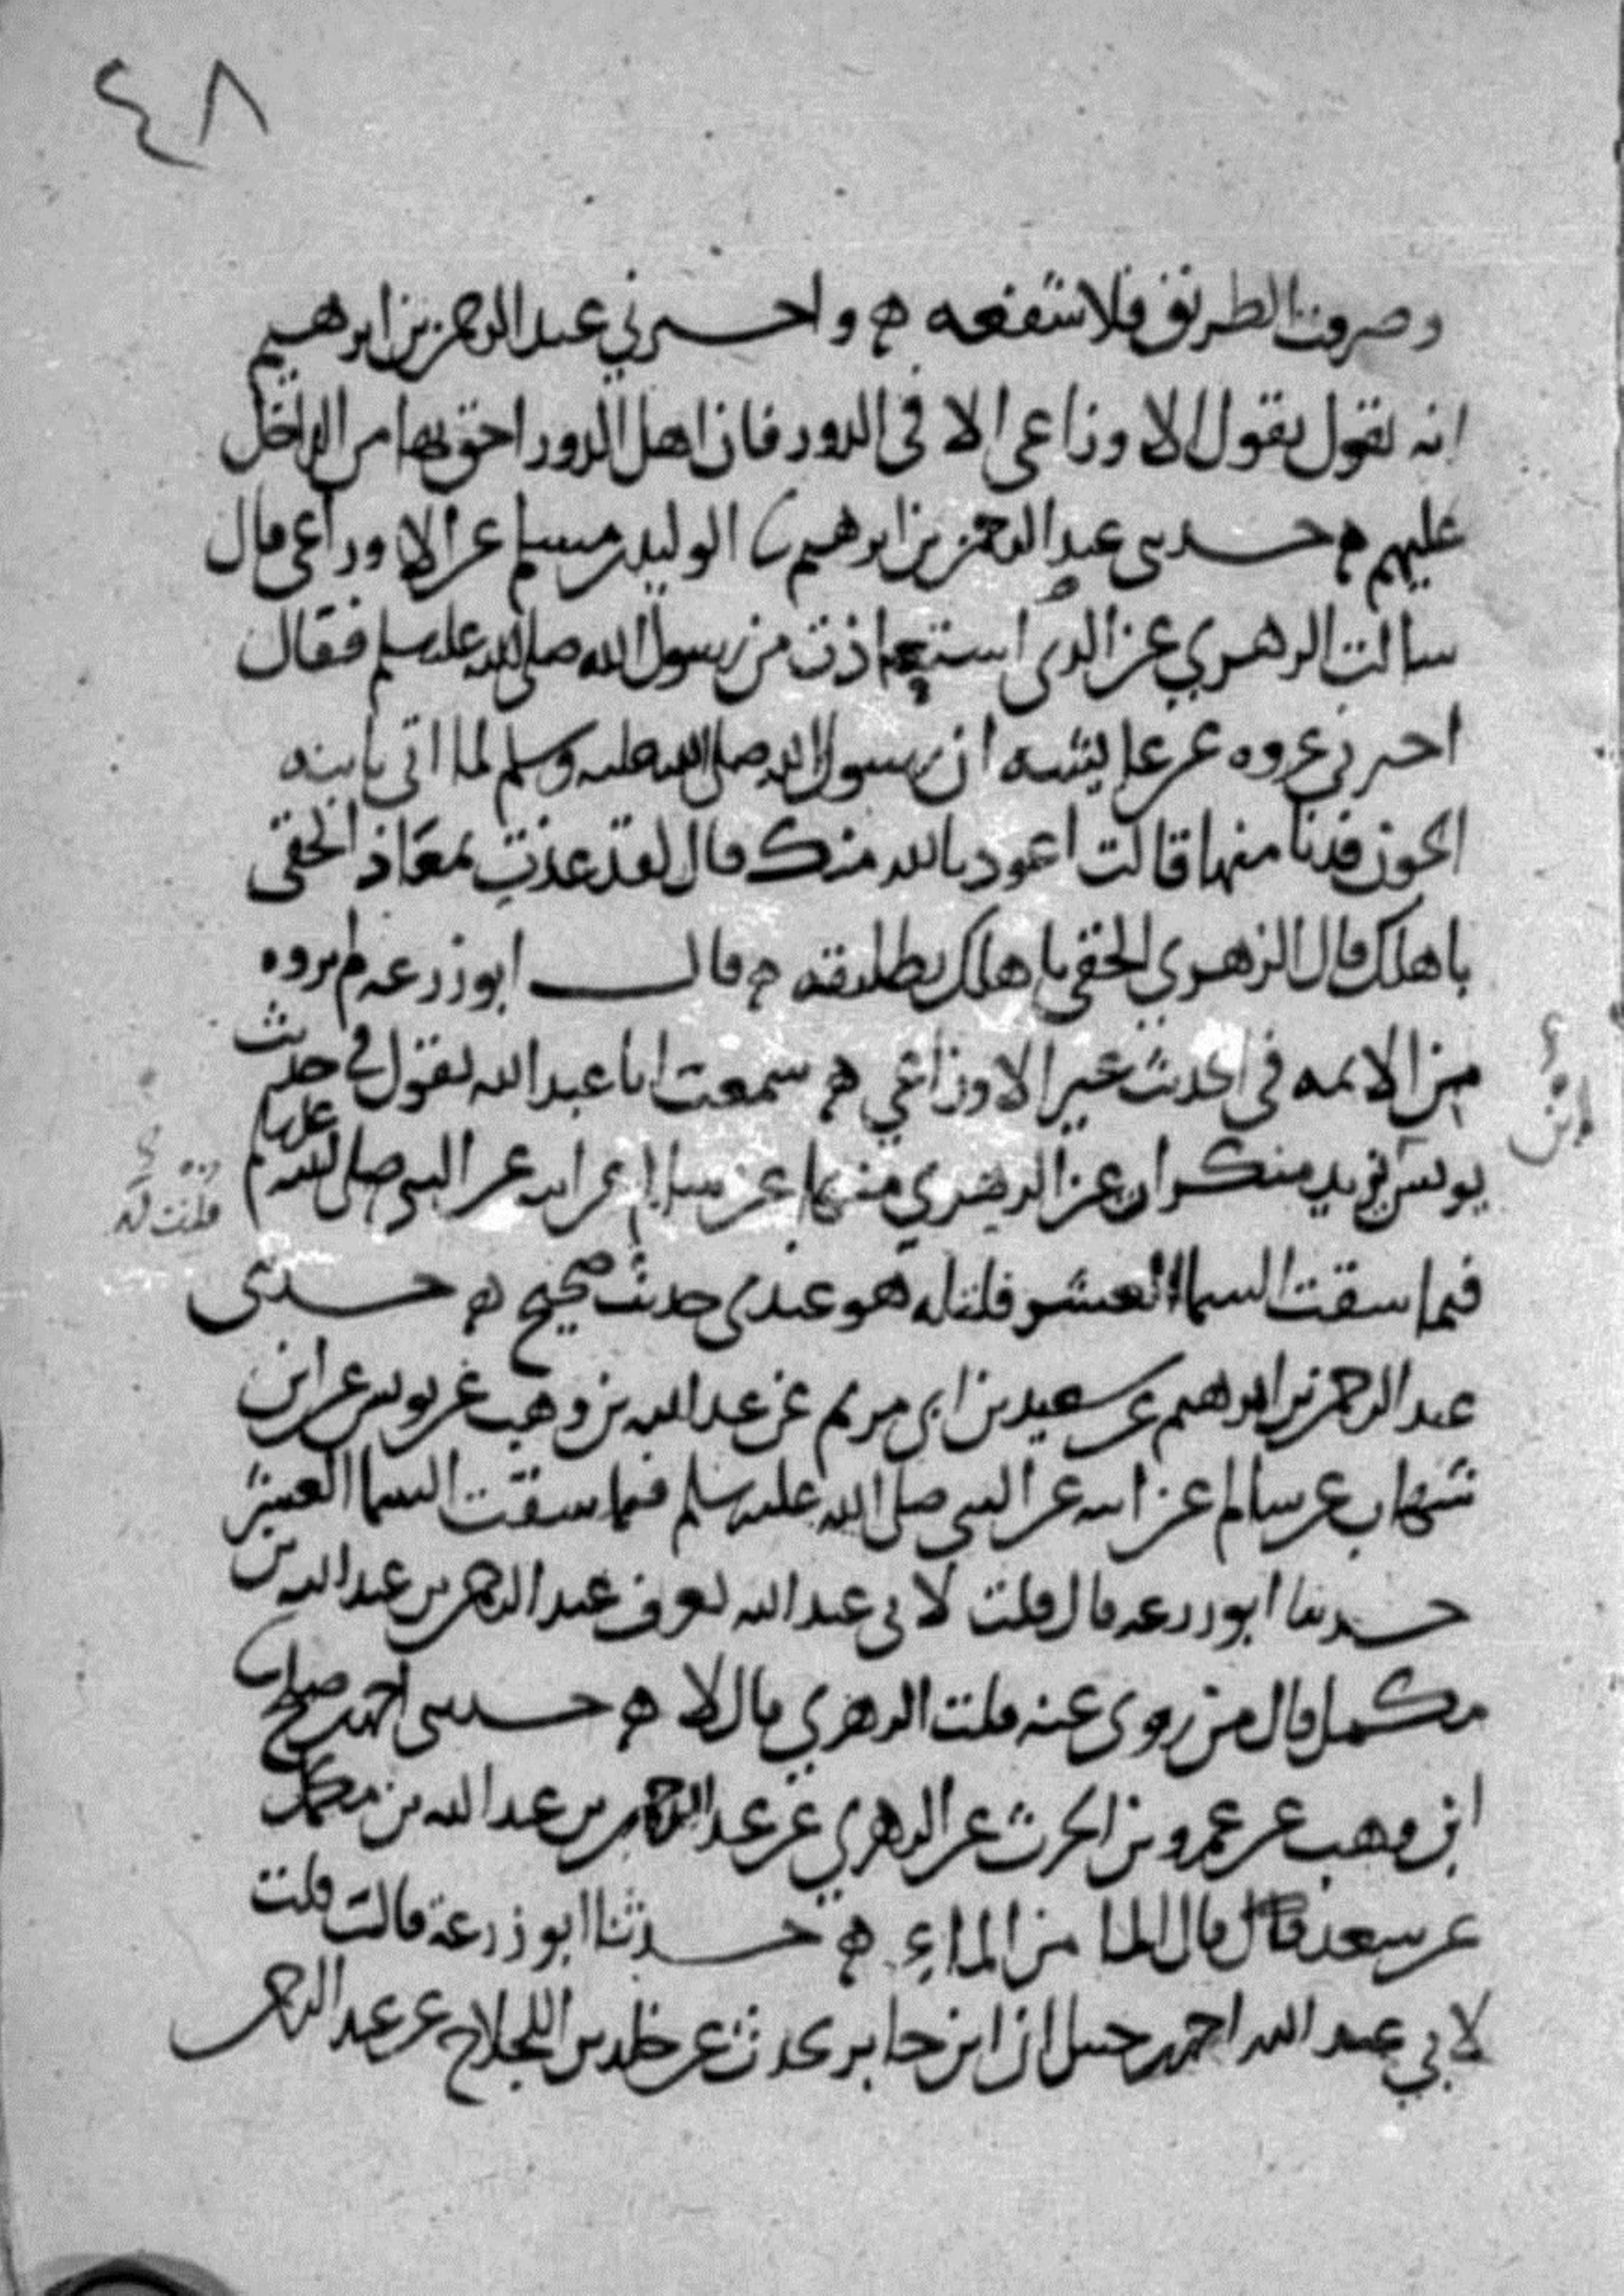 ٤٨
وصرفت الطريق فلا شفعه ه واخبرني عبد الرحمن بن ابرهيم
انه يقول بقول الاوزاعي الا في الدور فان اهل الدور احق بها من الداخل
عليهم ه حدثني عبد الرحمن بن ابرهيم الوليد بن مسلم عن الاوزاعي قال
سالت الزهري عن الذي استعاذت من رسول الله صلى الله عليه وسلم فقال
اخبرني عروه عن عايشه ان رسول الله صلى الله عليه وسلم لما اتي بابنه
الجون فدنا منها قالت اعوذ بالله منك قال لقد عذت بمعاذ الحقي
باهلك قال الزهري الحقي باهلك تطليقه ه قال ابو زرعه لم يروه
من الايمه في الحديث غير الاوزاعي ه سمعت ابا عبد الله يقول في حديث
يونس بن يزيد منكرات عن الزهري منها عن سالم عن ابيه عن النبي صلى الله عليه وسلم
فيما سقت السما العشر فلنا له هو عندي حديث صحيح ه حدثني
عبد الرحمن بن ابرهيم عن سعيد بن ابي مريم عن عبد الله بن وهب عن يونس عن ابن
شهاب عن سالم عن ابيه عن النبي صلى الله عليه وسلم فيما سقت السما العشر
حدثنا ابو زرعه قال قلت لابي عبد الله تعرف عبد الرحمن بن عبد الله بن
مكمل قال من روى عنه قلت الزهري قال لا ه حدثني احمد بن صالح
ابن وهب عن عمرو بن الحرث عن الزهري عن عبد الرحمن بن عبد الله بن مكمل
عن سعد قال قال الما من الماء ه حدثنا ابو زرعة قالت قلت
لابي عبد الله احمد بن حنبل ان ابن جابر يحدث عن خلد بن اللجلاج عن عبد الرحمن
ابن
قلت له